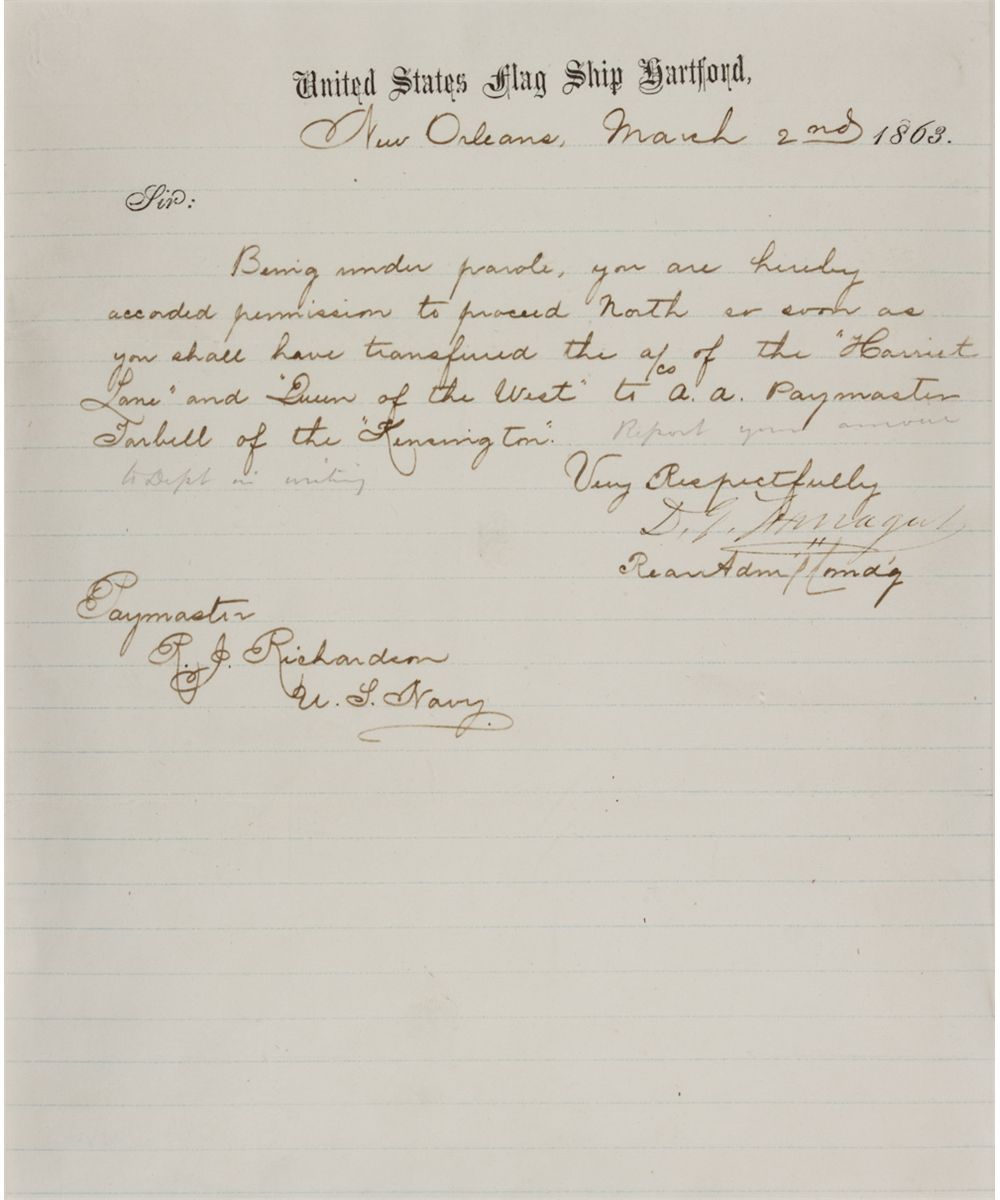 United States Flag Ship Hartford,
New Orleans, March 2nd 1863.
Sir:
Being under parole, you are hereby
accorded permission to proceed North so soon as
you shall have transfered the a/cs of the "Harriet
Lane" and "Queen of the West" to A. A. Paymaster
Tarbell of the "Kensington". Report your
to Dept in writing
Very Respectfully
D. G. Farragut
Rear Adm'l Comd'g
Paymaster
R. J. Richardson
U. S. Navy.